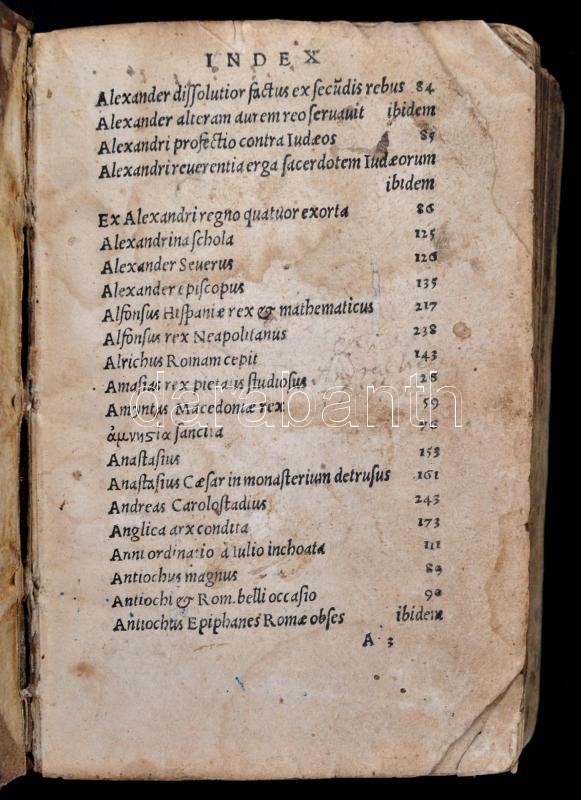 INDEX
Alexander dissolutior factus ex secũdis rebus 84
Alexander alteram aurem reo seruauit ibidem
Alexandri profectio contra Iudæos 85
Alexandri reuerentia erga sacerdotem Iudæorum
ibidem
Ex Alexandri regno quatuor exorta 86
Alexandrina schola 125
Alexander Seuerus 126
Alexander episcopus 135
Alfonsus Hispaniæ rex & mathematicus 217
Alfonsus rex Neapolitanus 238
Alrichus Romam cepit 143
Amasias rex pietatis studiosus 26
Amyntas Macedoniæ rex 59
ἀμνηστία sancita
Anastasius 153
Anastasius Cæsar in monasterium detrusus 161
Andreas Carolostadius 243
Anglica arx condita 173
Anni ordinatio à Iulio inchoata 111
Antiochus magnus 89
Antiochi & Rom. belli occasio 90
Antiochus Epiphanes Romæ obses ibidem
A 3
darabanth